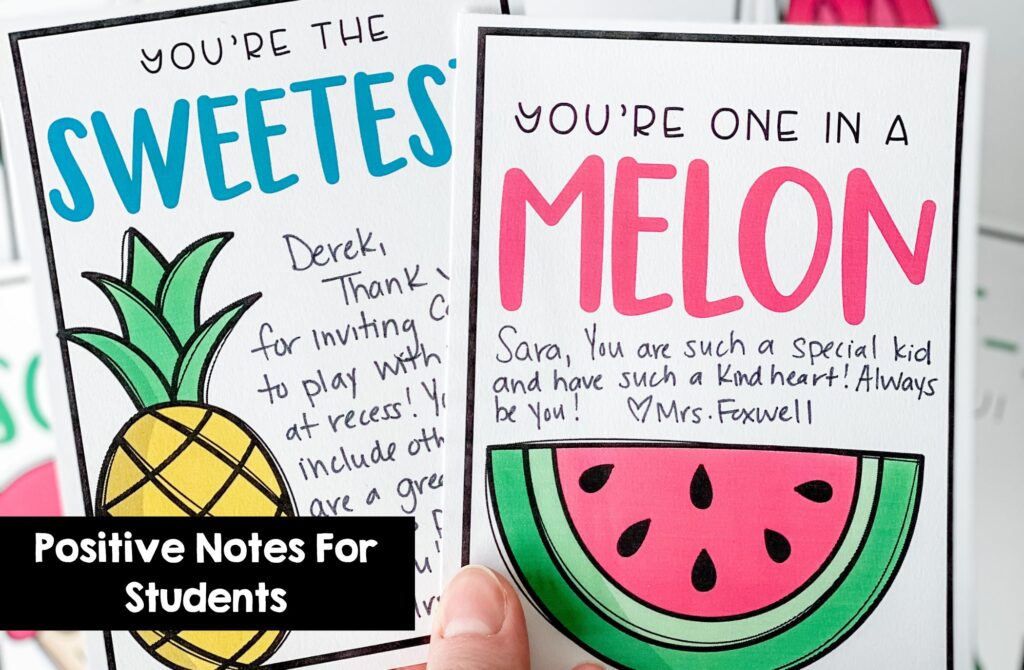 YOU'RE THE
SWEETES
Derek,
Thank
for inviting
to play with
at recess!
include
are a
YOU'RE ONE IN A
MELON
Sara, You are such a special kid
and have such a kind heart! Always
be you! ♡Mrs. Foxwell
Positive Notes For
Students